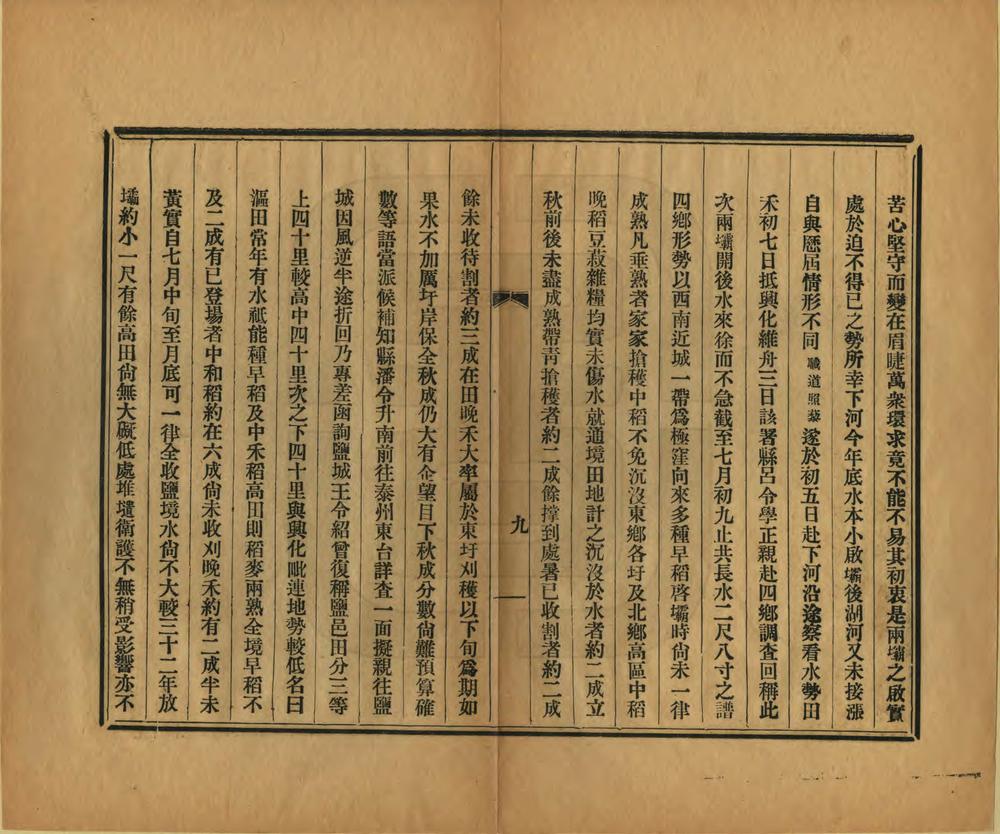 苦心堅守而變在眉睫萬衆環求竟不能不易其初衷是兩壩之啟實
處於迫不得已之勢所幸下河今年底水本小啟壩後湖河又未接漲
自與歷屆情形不同職道照蔾遂於初五日赴下河沿途察看水勢田
禾初七日抵興化維舟三日該署縣呂令學正親赴四鄉調查回稱此
次兩壩開後水來徐而不急截至七月初九止共長水二尺八寸之譜
四鄉形勢以西南近城一帶爲極窪向來多種早稻啓壩時尙未一律
成熟凡垂熟者家家搶穫中稻不免沉沒東鄉各圩及北鄉高區中稻
晚稻豆菽雜糧均實未傷水就通境田地計之沉沒於水者約二成立
秋前後未盡成熟帶靑搶穫者約二成餘撑到處暑已收割者約二成
九
餘未收待割者約三成在田晚禾大率屬於東圩刈穫以下旬爲期如
果水不加厲圩岸保全秋成仍大有企望目下秋成分數尙難預算確
數等語當派候補知縣潘令升南前往泰州東台詳查一面擬親往鹽
城因風逆半途折回乃專差函詢鹽城王令紹曾復稱鹽邑田分三等
上四十里較高中四十里次之下四十里與興化毗連地勢較低名曰
漚田常年有水祇能種早稻及中禾稻高田則稻麥兩熟全境早稻不
及二成有已登場者中和稻約在六成尙未收刈晚禾約有二成半未
黃實自七月中旬至月底可一律全收鹽境水尙不大較三十二年放
壩約小一尺有餘高田尙無大礙低處堆壝衛護不無稍受影響亦不